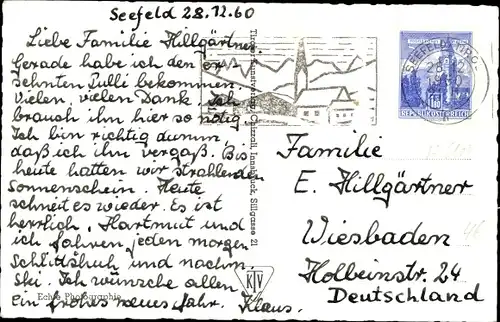 Seefeld 28.12.60
Liebe Familie Hillgärtner
Gerade habe ich den er-
sehnten Pulli bekommen.
Vielen, vielen Dank. Ich
brauch ihn hier so nötig
Ich bin richtig dumm,
daß ich ihn vergaß. Bis
heute hatten wir strahlenden
Sonnenschein. Heute
schneit es wieder. Es ist
herrlich. Hartmut und
ich fahren jeden morgen
Schlittschuh und nachm.
Ski. Ich wünsche allen
ein frohes neues Jahr. Klaus.
Echte Photographie
Innsbruck, Sillgasse 21
KTV
REPUBLIK ÖSTERREICH
Familie
E. Hillgärtner
Wiesbaden
Holbeinstr. 24
Deutschland